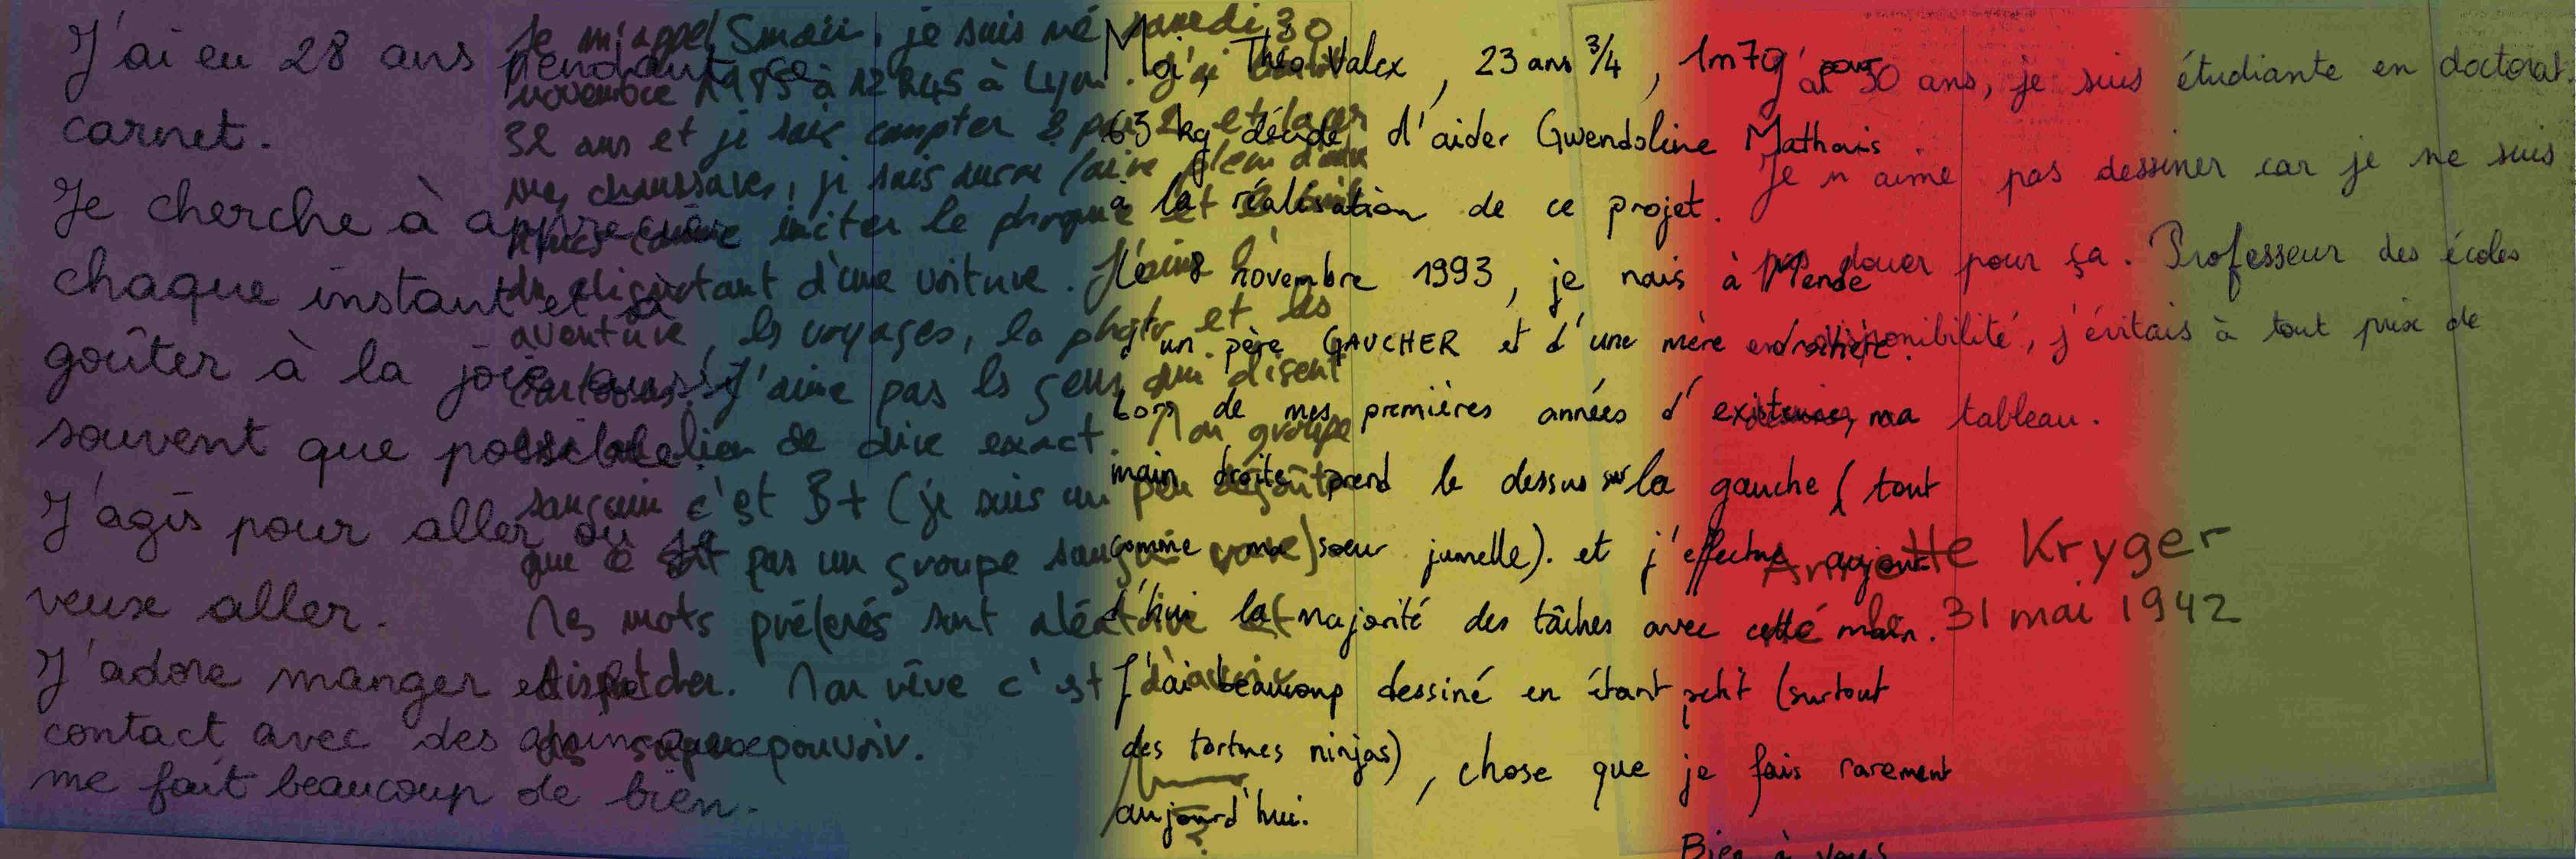 J'ai eu 28 ans pendant ce
carnet.
Je cherche à apprécier
chaque instant et à
goûter à la joie aussi
souvent que possible.
J'agis pour aller où je
veux aller.
J'adore manger et le
contact avec des animaux
me fait beaucoup de bien.
Je m'appel Smaïl, je suis né samedi 30
novembre 1985 à 12h45 à Lyon. J'ai
32 ans et je sais compter 2 par 2 et lacer
mes chaussures, je sais aussi faire plein d'autre
trucs comme imiter le phoque et le bruit
du clignotant d'une voiture. J'aime l'
aventure, les voyages, la photo et les
cartoons. J'aime pas les gens qui disent
au lieu de dire exact. Mon groupe
sanguin c'est B+ (je suis un peu dégouté
que ce soit pas un groupe sanguin rare)
Mes mots préférés sont aléatoire et
dispatcher. Mon rêve c'est d'avoir
des super pouvoir.
Moi, Théo Valex, 23 ans 3/4, 1m79 pour
63 kg décide d'aider Gwendoline Mathais
à la réalisation de ce projet.
Le 8 novembre 1993, je nais à Mende
d'un père GAUCHER et d'une mère droitière.
Lors de mes premières années d'existence, ma
main droite prend le dessus sur la gauche (tout
comme ma soeur jumelle). et j'effectue aujour
d'hui la majorité des tâches avec cette main.
J'ai beaucoup dessiné en étant petit (surtout
des tortues ninjas), chose que je fais rarement
aujourd'hui.
Bien à vous
J'ai 30 ans, je suis étudiante en doctorat
Je n'aime pas dessiner car je ne suis
pas douer pour ça. Professeur des écoles
en disponibilité, j'évitais à tout prix de
dessiner au tableau.
Annette Kryger
31 mai 1942